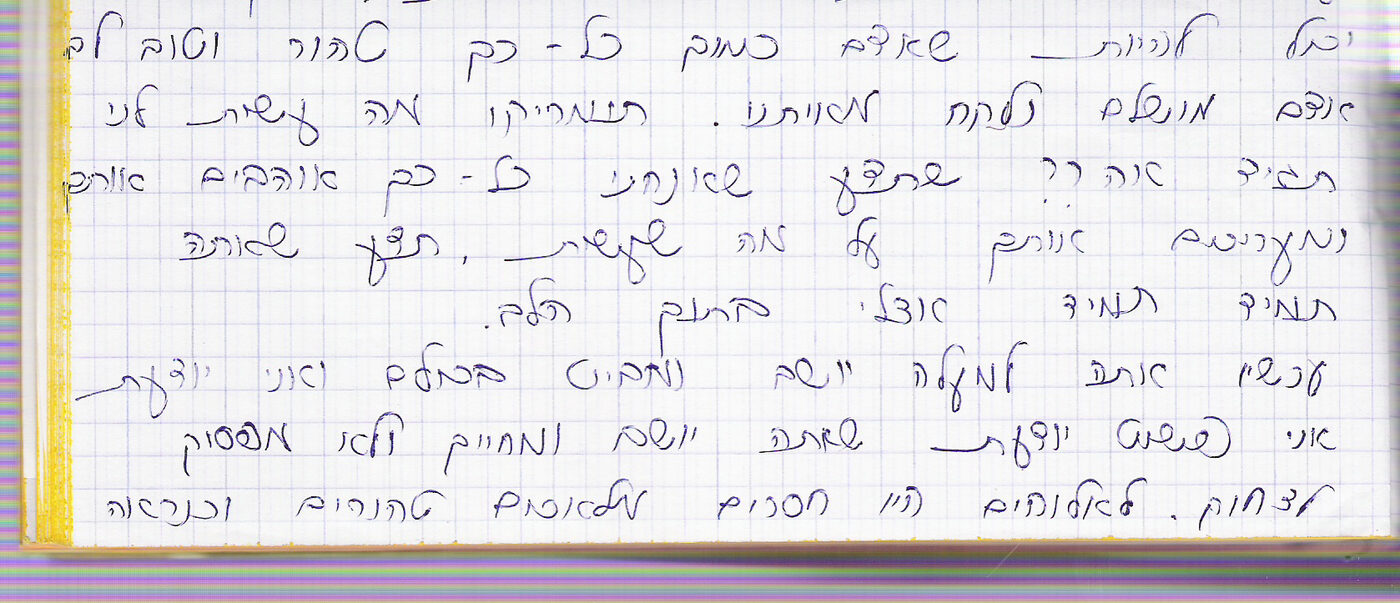 יכול להיות שאדם כמוך כל-כך טהור וטוב לב
אדם מושלם נלקח מאיתנו. תנמריקו מה עשית לני
תגיד אה ?? שתדע שאנחנו כל-כך אוהבים אותך
ומעריכים אותך על מה שעשית, תדע שאתה
תמיד תמיד אצלי בתוך הלב.
עכשיו אתה למעלה יושב ומביט בכולם ואני יודעת
אני פשוט יודעת שאתה יושב ומחייך ולא מפסיק
לצחוק. לאלוהים היו חסרים מלאכים טהורים וכנראה